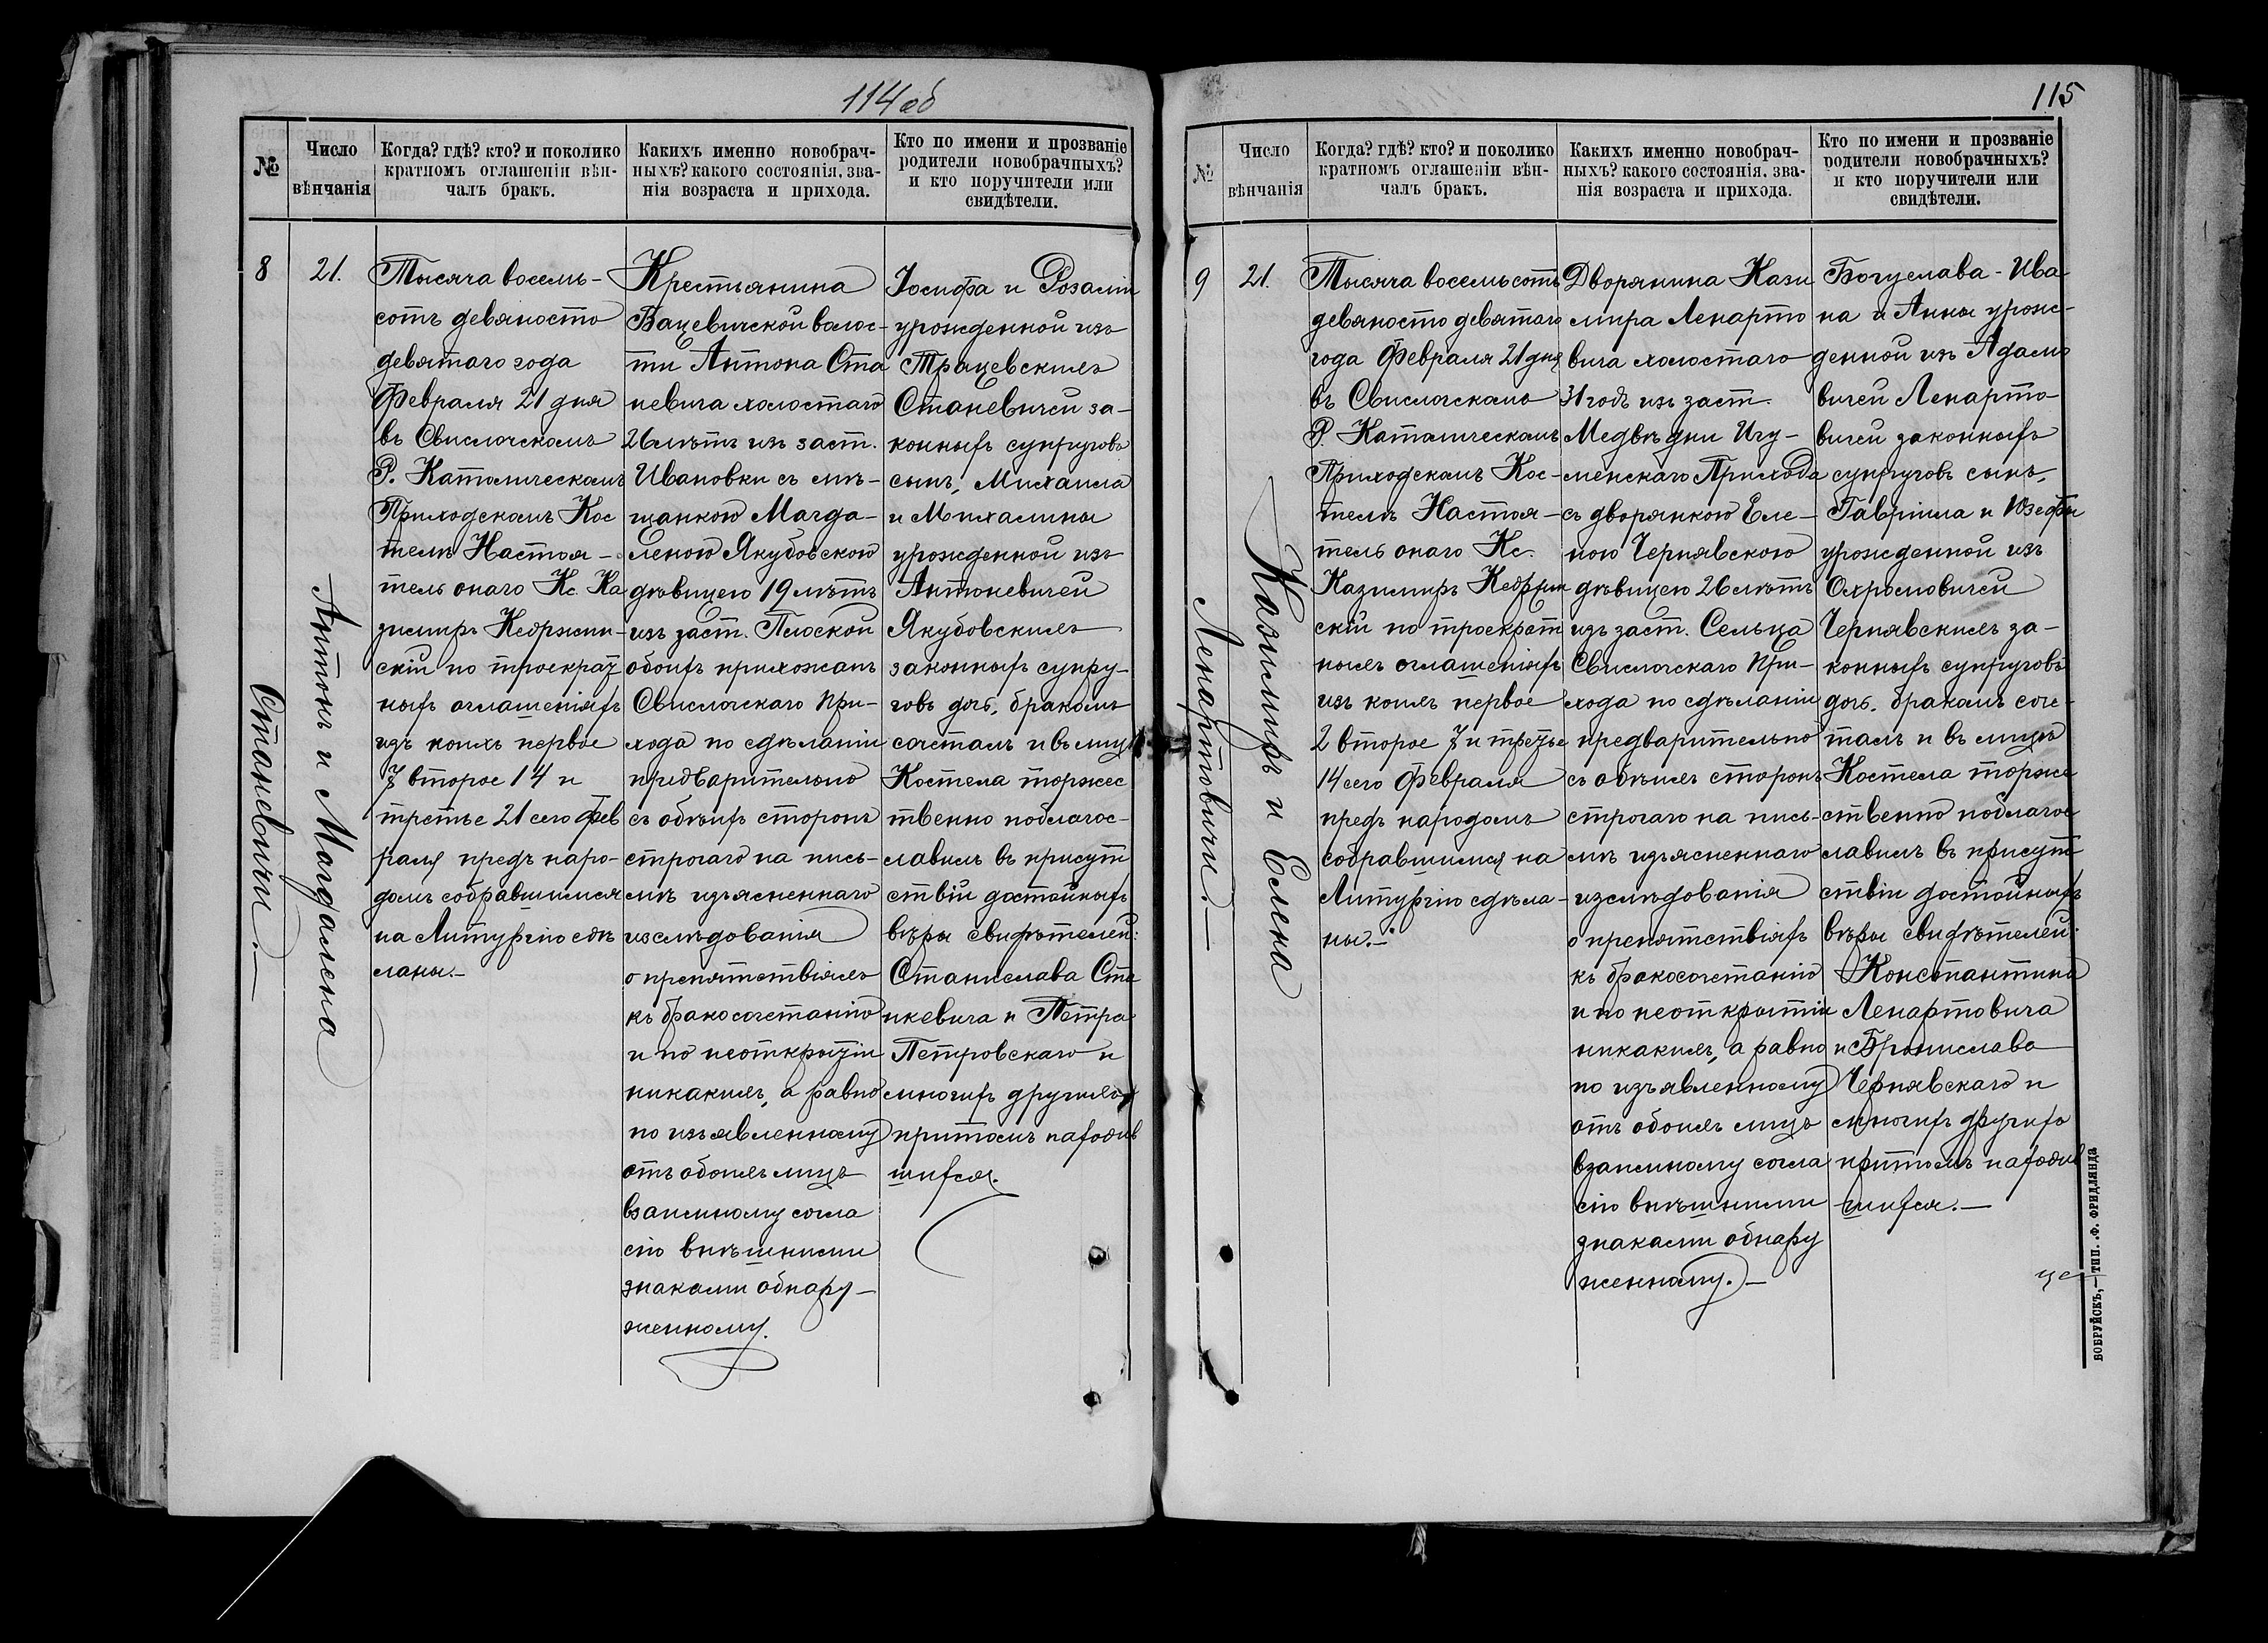 114 об
№
Число
вѣнчанія
Когда? гдѣ? кто? и поколико
кратномъ оглашеніи вѣн-
чалъ бракъ.
Какихъ именно новобрач-
ныхъ? какого состоянія, зва-
нія возраста и прихода.
Кто по имени и прозваніе
родители новобрачныхъ?
и кто поручители или
свидѣтели.
8
21.
Антонъ и Магдалена
Станевичи.—
Тысяча восемь-
сотъ девяносто
девятаго года
Февраля 21 дня
въ Свислочскомъ
Р. Католическомъ
Приходскомъ Кос
телѣ Настоя-
тель онаго Кс. Ка
зимиръ Кедржин-
скій по троекрат
ныхъ оглашеніяхъ
изъ коихъ первое
7 второе 14 и
третье 21 сего Фев
раля предъ наро-
домъ собравшимся
на Литургію сдѣ
ланы.—
Крестьянина
Вацевичской волос-
ти Антона Ста
невича холостаго
26 лѣтъ изъ заст.
Ивановки съ мѣ-
щанкою Магда-
леною Якубовскою
дѣвицею 19 лѣтъ
изъ заст. Плоской
обоихъ прихожанъ
Свислочскаго При-
хода по сдѣланіи
предварительно
съ обѣихъ сторонъ
строгаго на пись-
мѣ изъясненнаго
изслѣдованія
о препятствіяхъ
къ бракосочетанію
и по неоткрытіи
никакихъ, а равно
по изъявленному
отъ обоихъ лицъ
взаимному согла
сію внѣшними
знаками обнару-
женному.
Іосифа и Розаліи
урожденной изъ
Трацевскихъ
Станевичей за-
конныхъ супруговъ
сынъ, Михаила
и Михалины
урожденной изъ
Антоневичей
Якубовскихъ
законныхъ супру-
говъ дочь, бракомъ
сочеталъ и въ лицѣ
Костела торжес
твенно поблагос-
лавилъ въ присут
ствіи достойныхъ
вѣры свидѣтелей:
Станислава Ста
нкевича и Петра
Петровскаго и
многихъ другихъ
притомъ находив
шихся.
115
№
Число
вѣнчанія
Когда? гдѣ? кто? и поколико
кратномъ оглашеніи вѣн-
чалъ бракъ.
Какихъ именно новобрач-
ныхъ? какого состоянія, зва-
нія возраста и прихода.
Кто по имени и прозваніе
родители новобрачныхъ?
и кто поручители или
свидѣтели.
9
21.
Казимиръ и Елена
Ленартовичи.—
Тысяча восемьсотъ
девяносто девятаго
года Февраля 21 дня
въ Свислочскомъ
Р. Католическомъ
Приходскомъ Кос-
телѣ Настоя-
тель онаго Кс.
Казимиръ Кедржин
скій по троекрат
ныхъ оглашеніяхъ
изъ коихъ первое
2 второе 7 и третье
14 сего Февраля
предъ народомъ
собравшимся на
Литургію сдѣла-
ны.—
Дворянина Кази
мира Ленарто
вича холостаго
31 годъ изъ заст.
Медвѣдни Игу-
менскаго Прихода
съ дворянкою Еле-
ною Чернявскою
дѣвицею 26 лѣтъ
изъ заст. Сельца
Свислочскаго При-
хода по сдѣланіи
предварительно
съ обѣихъ сторонъ
строгаго на пись-
мѣ изъясненнаго
изслѣдованія
о препятствіяхъ
къ бракосочетанію
и по неоткрытіи
никакихъ, а равно
по изъявленному
отъ обоихъ лицъ
взаимному согла
сію внѣшними
знаками обнару
женному.—
Богуслава-Ива
на и Анны урож-
денной изъ Адамо
вичей Ленарто-
вичей законныхъ
супруговъ сынъ,
Гавріила и Юзефы
урожденной изъ
Охрымовичей
Чернявскихъ за-
конныхъ супруговъ
дочь, бракомъ соче-
талъ и въ лицѣ
Костела торже
ственно поблагос
лавилъ въ присут
ствіи достойныхъ
вѣры свидѣтелей:
Константина
Ленартовича
и Бронислава
Чернявскаго и
многихъ другихъ
притомъ находив
шихся.—
БОБРУЙСКЪ,—ТИП. Ф. ФРИДЛЯНДА